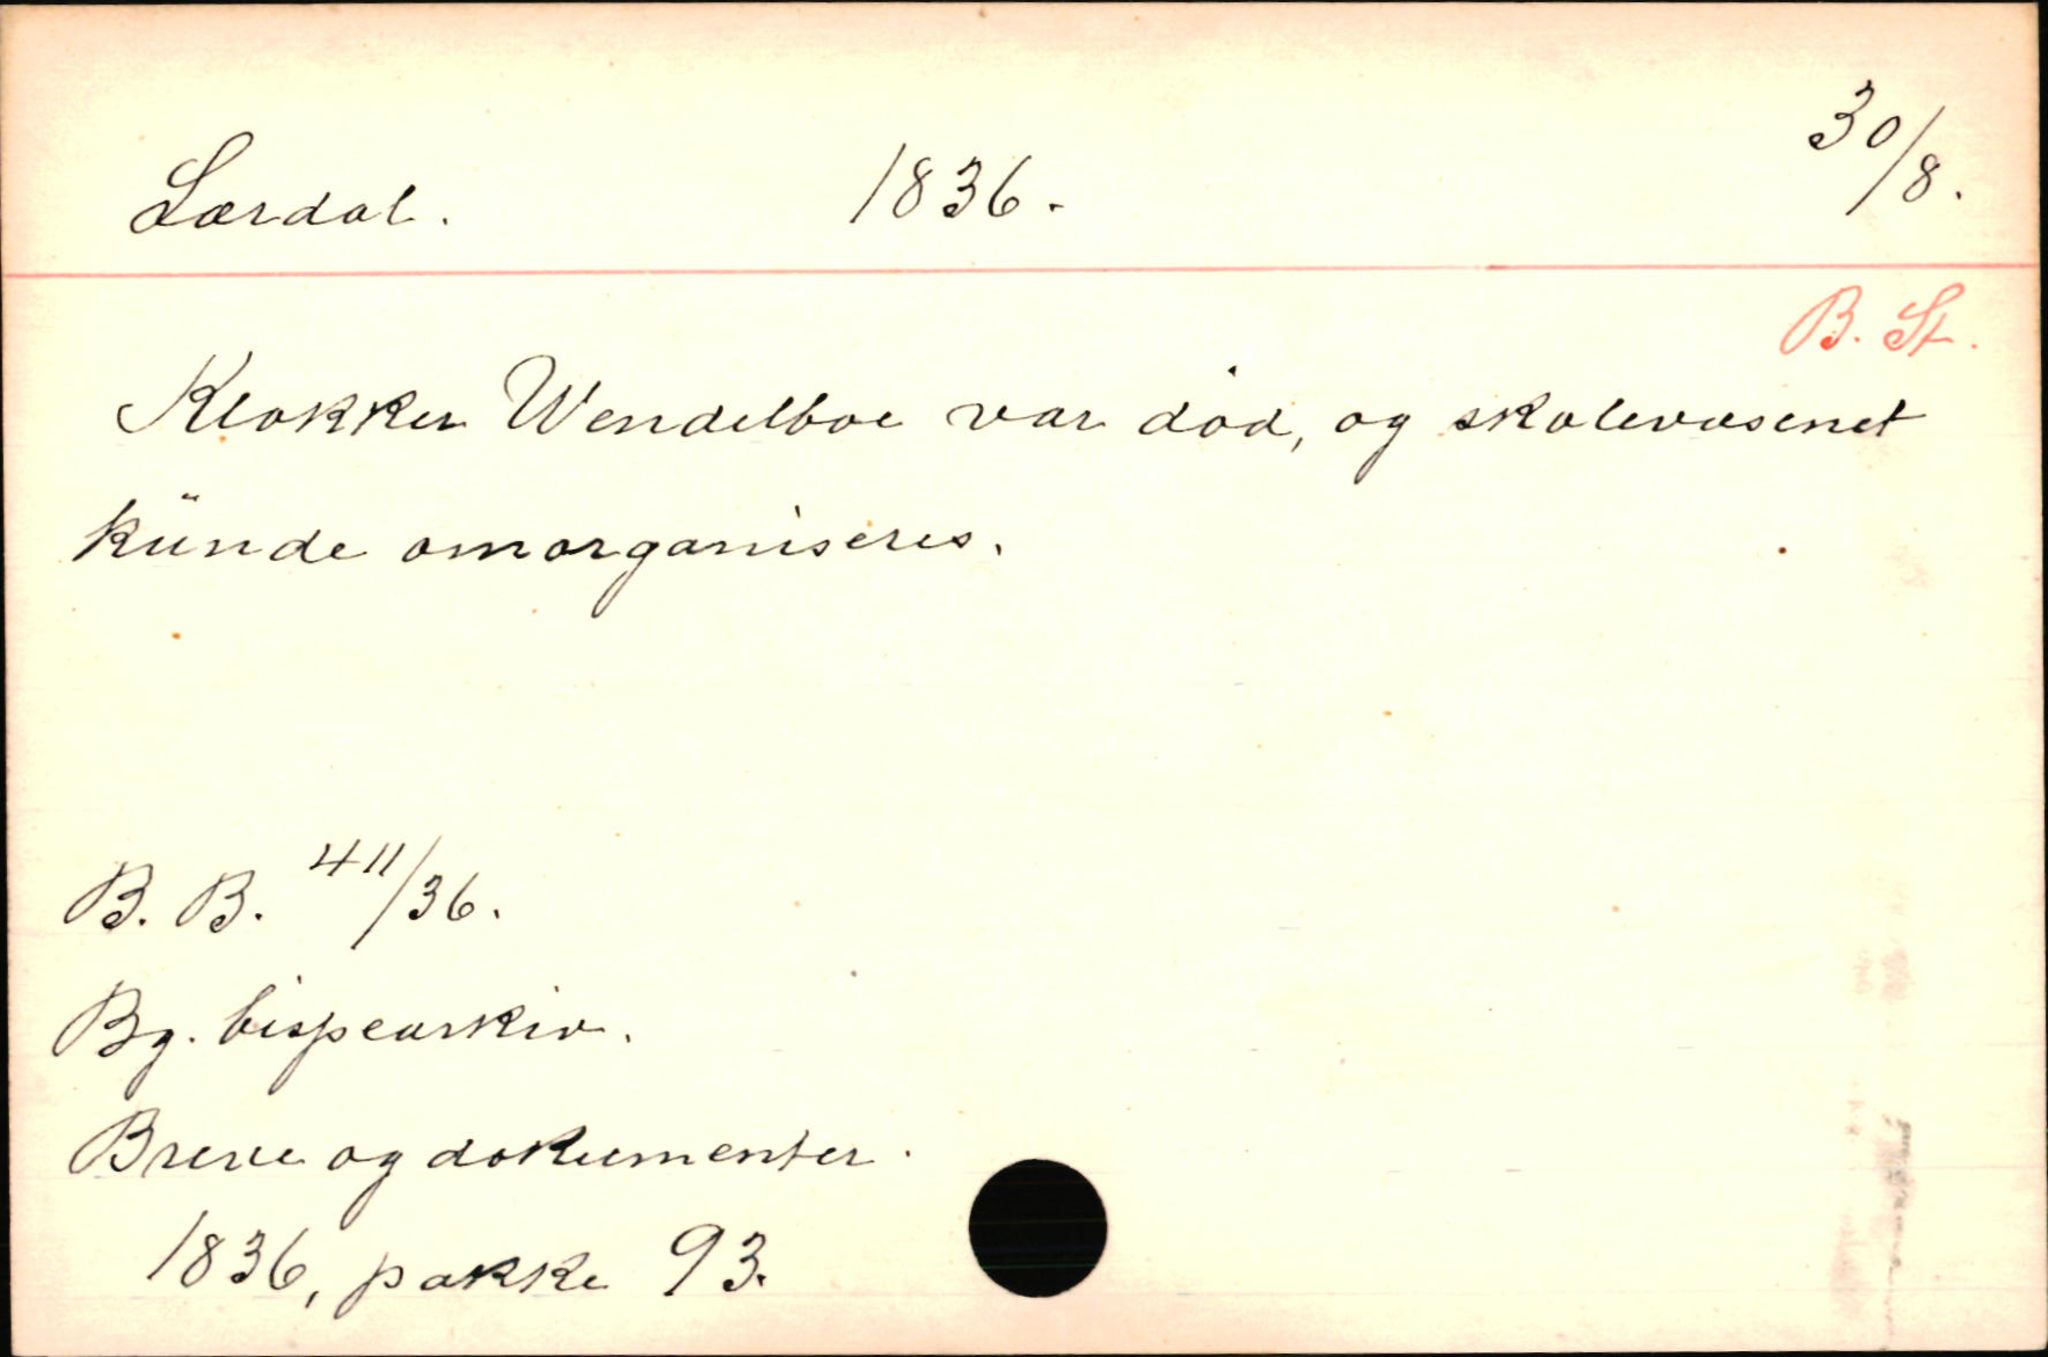 Lærdal. 1836. 30/8.
B. St.
Klokker Wendelboe var död, og skolevæsenet
künde omorganiseres.
B. B. 411/36.
Bg. bispearkiv.
Breve og dokumenter.
1836, pakke 93.